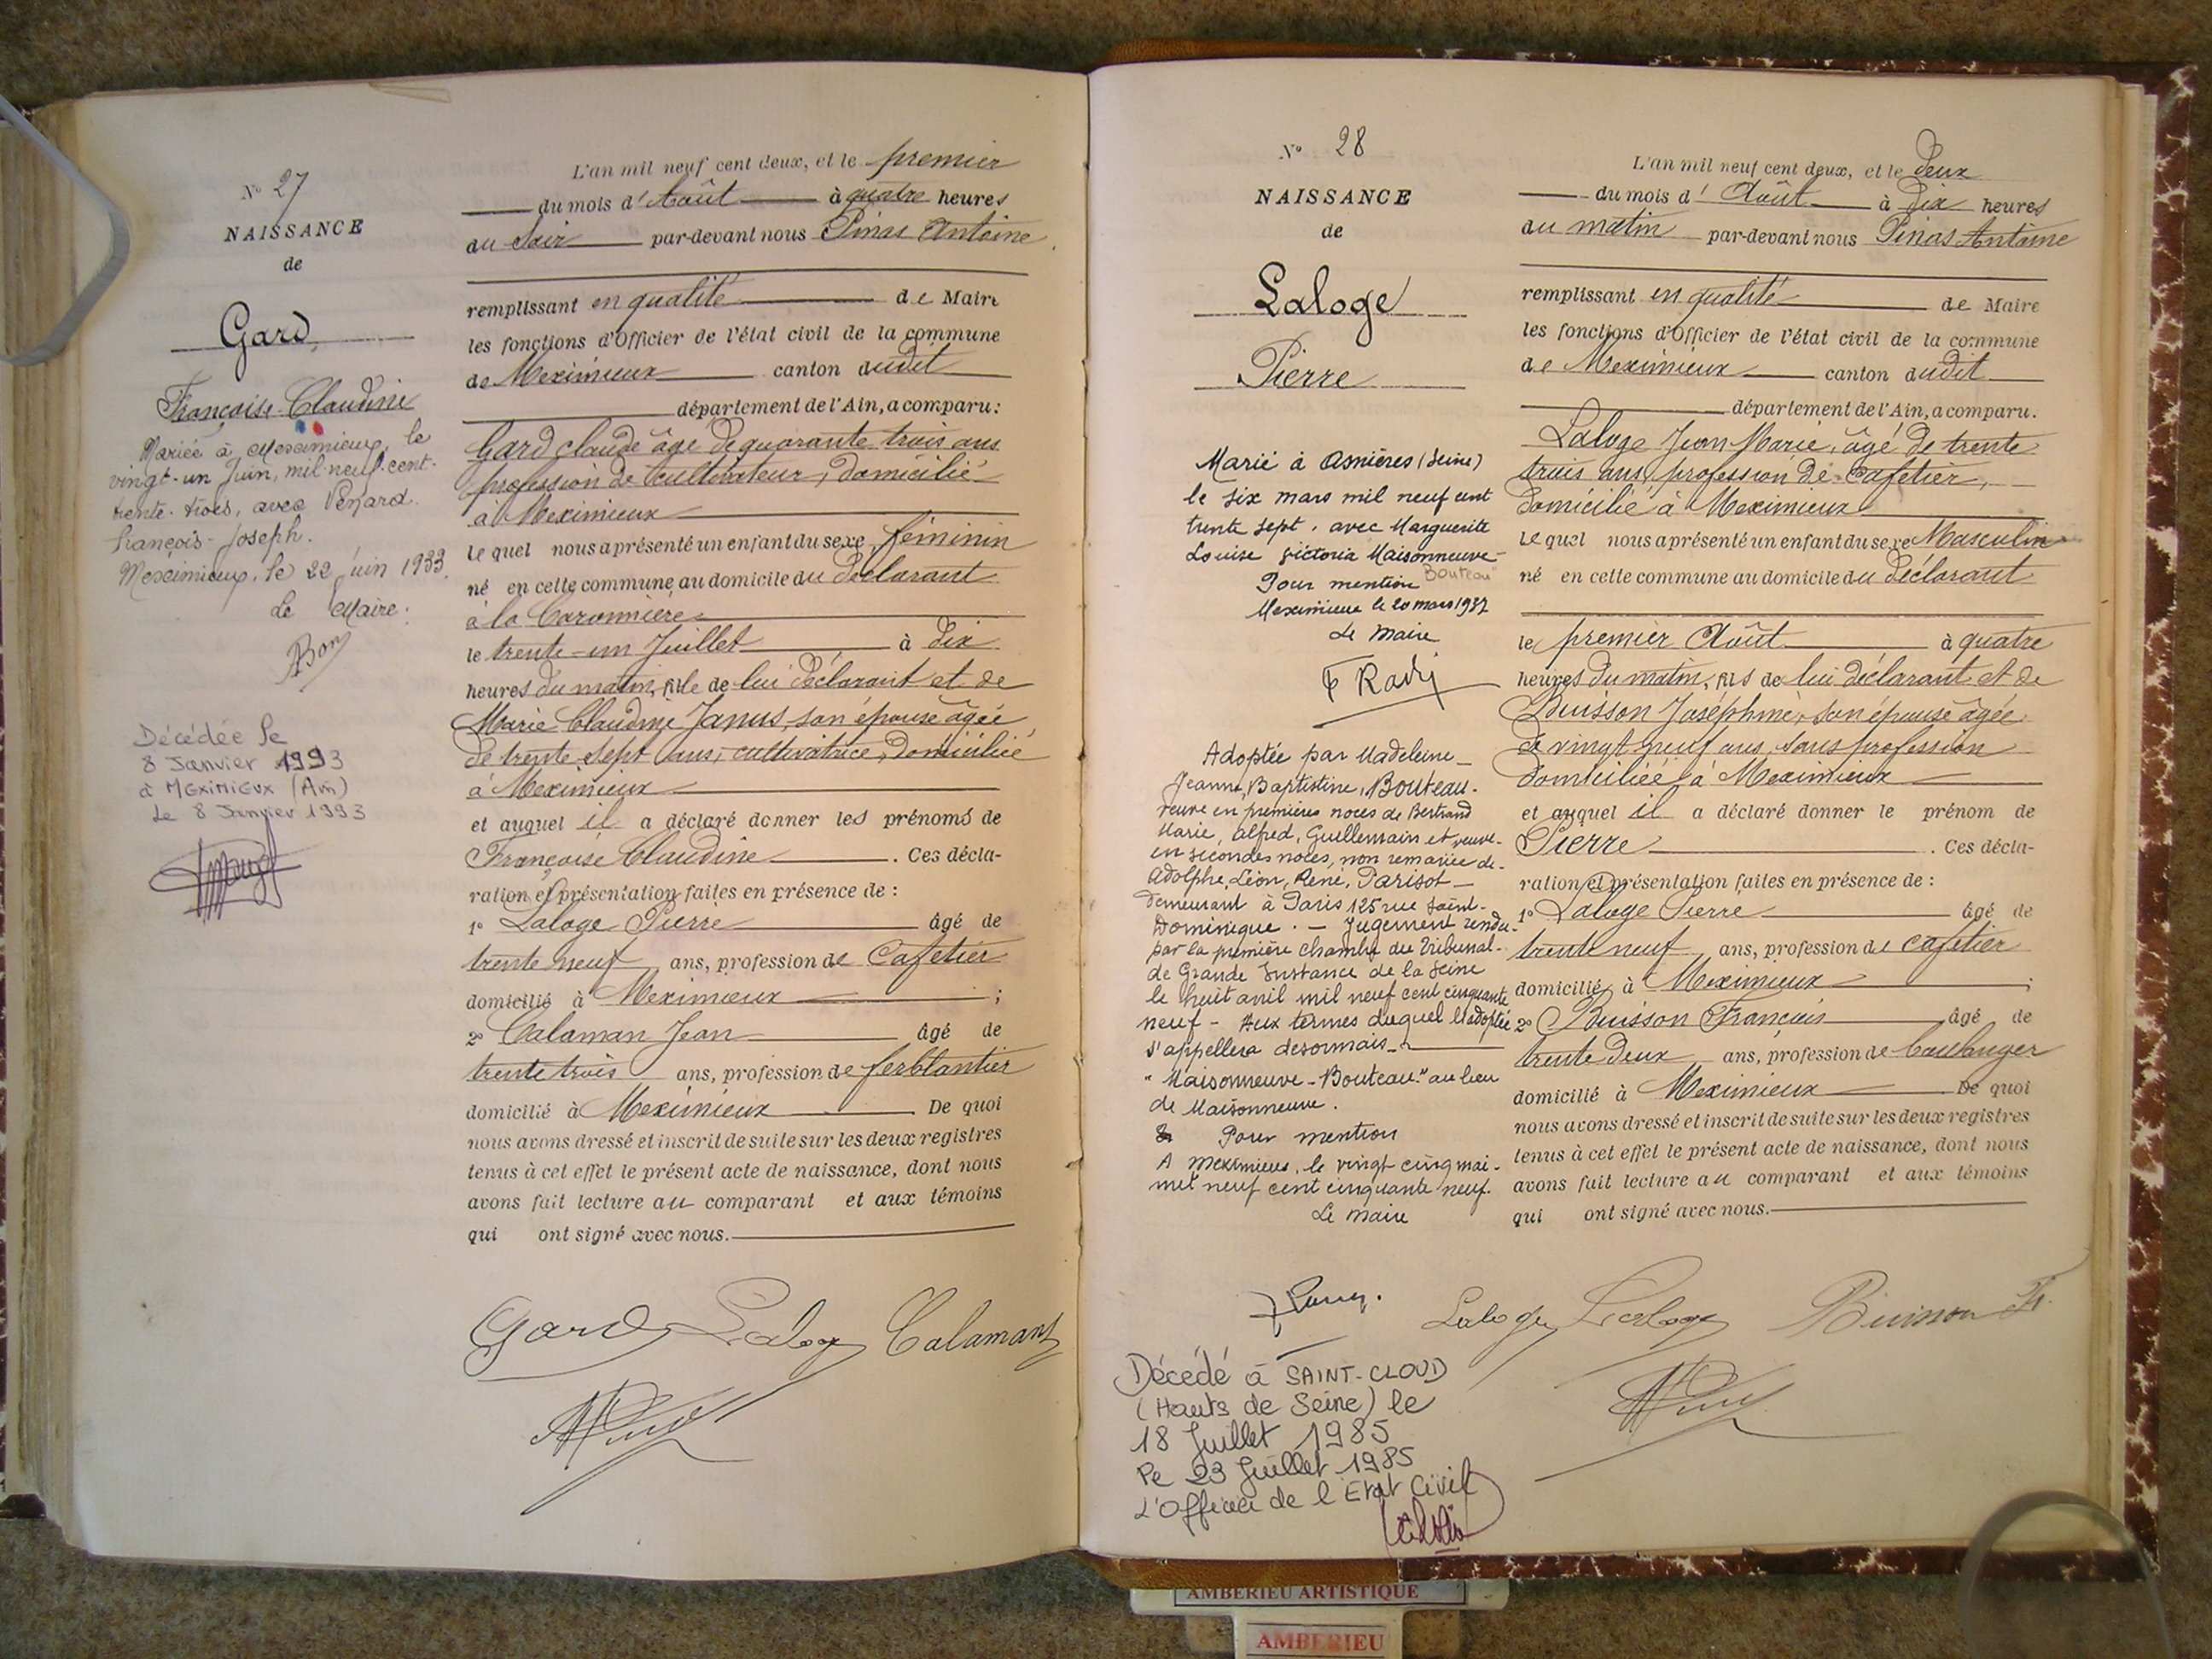 N° 27
NAISSANCE
de
Gard
Françoise Claudine
Mariée à Meximieux, le
vingt-un Juin, mil neuf cent
trente-trois, avec
François-Joseph.
Meximieux, le 22 juin 1933.
Le Maire:
Décédée le
8 Janvier 1993
à MEXIMIEUX (Ain)
Le 8 Janvier 1993
L'an mil neuf cent deux, et le premier
du mois d'Août à quatre heures
du soir par-devant nous Pinas Antoine
remplissant en qualité de Maire
les fonctions d'Officier de l'état civil de la commune
de Meximieux canton dudit
département de l'Ain, a comparu:
Gard Claude âgé de quarante trois ans
profession de Cultivateur, domicilié
à Meximieux
lequel nous a présenté un enfant du sexe féminin
né en cette commune au domicile du déclarant
à la
le trente-un Juillet à dix
heures du matin, fille de lui déclarant et de
Marie Claudine Janus, son épouse âgée
de trente sept ans, cultivatrice, domiciliée
à Meximieux
et auquel il a déclaré donner les prénoms de
Françoise Claudine . Ces décla-
ration et présentation faites en présence de :
1° Laloge Pierre âgé de
trente neuf ans, profession de Cafetier
domicilié à Meximieux ;
2° Calaman Jean âgé de
trente trois ans, profession de ferblantier
domicilié à Meximieux . De quoi
nous avons dressé et inscrit de suite sur les deux registres
tenus à cet effet le présent acte de naissance, dont nous
avons fait lecture au comparant et aux témoins
qui ont signé avec nous.
Gard Laloge Calamant
N° 28
NAISSANCE
de
Laloge
Pierre
Marié à Asnières (Seine)
le six mars mil neuf cent
trente sept, avec Marguerite
Louise Victoria Maisonneuve-
Bouteau
Pour mention
Meximieux le 20 mars 1937
Le Maire
Adoptée par Madeleine
Jeanne, Baptistine, Bouteau.
veuve en premières noces de Bertrand
Marie, Alfred, Guillemain et veuve
en secondes noces, non remariée de
Adolphe, Léon, René, Parisot
demeurant à Paris 125 rue Saint-
Dominique. - Jugement rendu
par la première chambre du Tribunal
de Grande Instance de la Seine
le huit avril mil neuf cent cinquante
neuf - Aux termes duquel l'adoptée
s'appellera desormais
"Maisonneuve-Bouteau" au lieu
de Maisonneuve.
Pour mention
A Meximieux, le vingt cinq mai
mil neuf cent cinquante neuf.
Le Maire
Décédé à SAINT-CLOUD
(Hauts de Seine) le
18 Juillet 1985
Le 23 Juillet 1985
L'Officier de l'Etat Civil
L'an mil neuf cent deux, et le deux
du mois d'Août à dix heures
du matin par-devant nous Pinas Antoine
remplissant en qualité de Maire
les fonctions d'Officier de l'état civil de la commune
de Meximieux canton dudit
département de l'Ain, a comparu.
Laloge Jean Marie, âgé de trente
trois ans, profession de Cafetier,
domicilié à Meximieux
lequel nous a présenté un enfant du sexe Masculin
né en cette commune au domicile du déclarant
le premier Août à quatre
heures du matin, fils de lui déclarant et de
Buisson Joséphine, son épouse âgée
de vingt neuf ans, sans profession
domiciliée à Meximieux
et auquel il a déclaré donner le prénom de
Pierre . Ces décla-
ration et présentation faites en présence de :
1° Laloge Pierre âgé de
trente neuf ans, profession de cafetier
domicilié à Meximieux ;
2° Buisson François âgé de
trente deux ans, profession de boulanger
domicilié à Meximieux De quoi
nous avons dressé et inscrit de suite sur les deux registres
tenus à cet effet le présent acte de naissance, dont nous
avons fait lecture au comparant et aux témoins
qui ont signé avec nous.
Laloge Laloge Buisson Fr.
AMBERIEU ARTISTIQUE
AMBERIEU